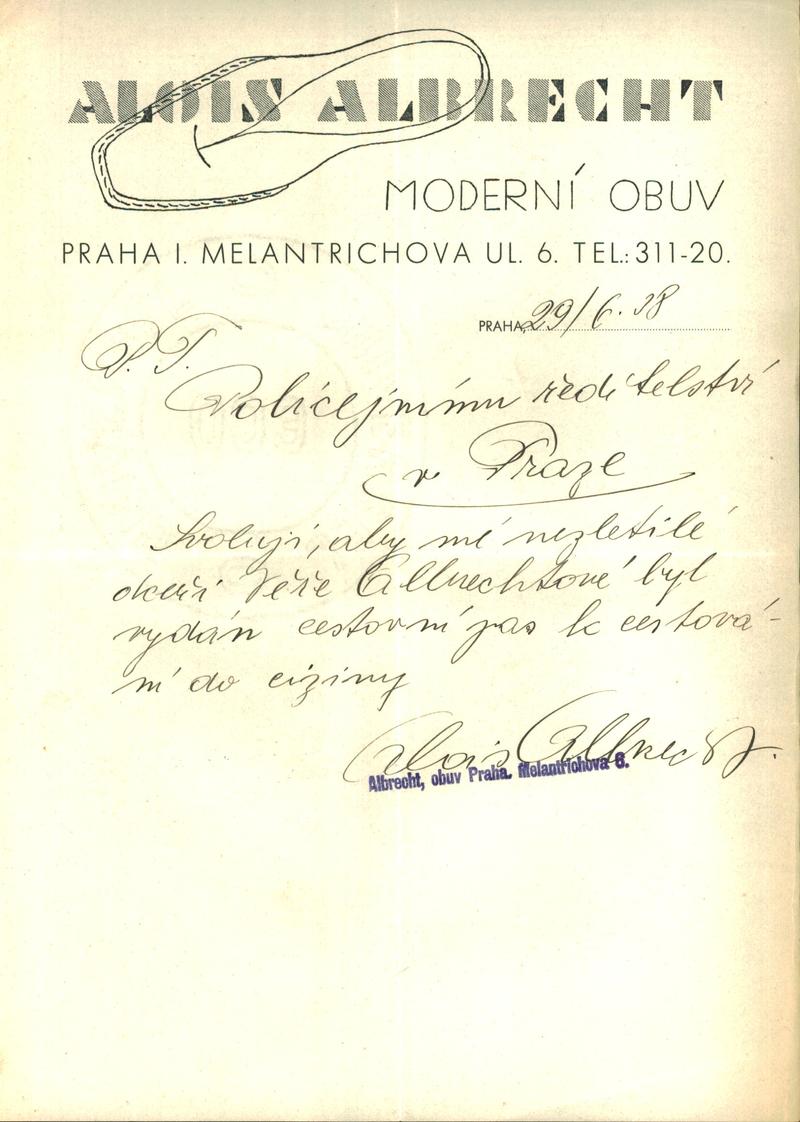 ALOIS ALBRECHT
MODERNÍ OBUV
PRAHA I. MELANTRICHOVA UL. 6. TEL.: 311-20.
PRAHA, 29/6. 38
P. T.
Policejnímu ředitelství
v Praze
Svoluji, aby mé nezletilé
dceři Věře Albrechtové byl
vydán cestovní pas k cestová-
ní do ciziny
Alois Albrecht.
Albrecht, obuv Praha. Melantrichova 6.